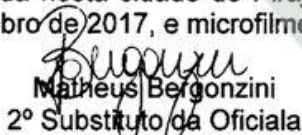 bro de 2017, e microfilme
Bergonzini
Matheus Bergonzini
2º Substituto da Oficiala